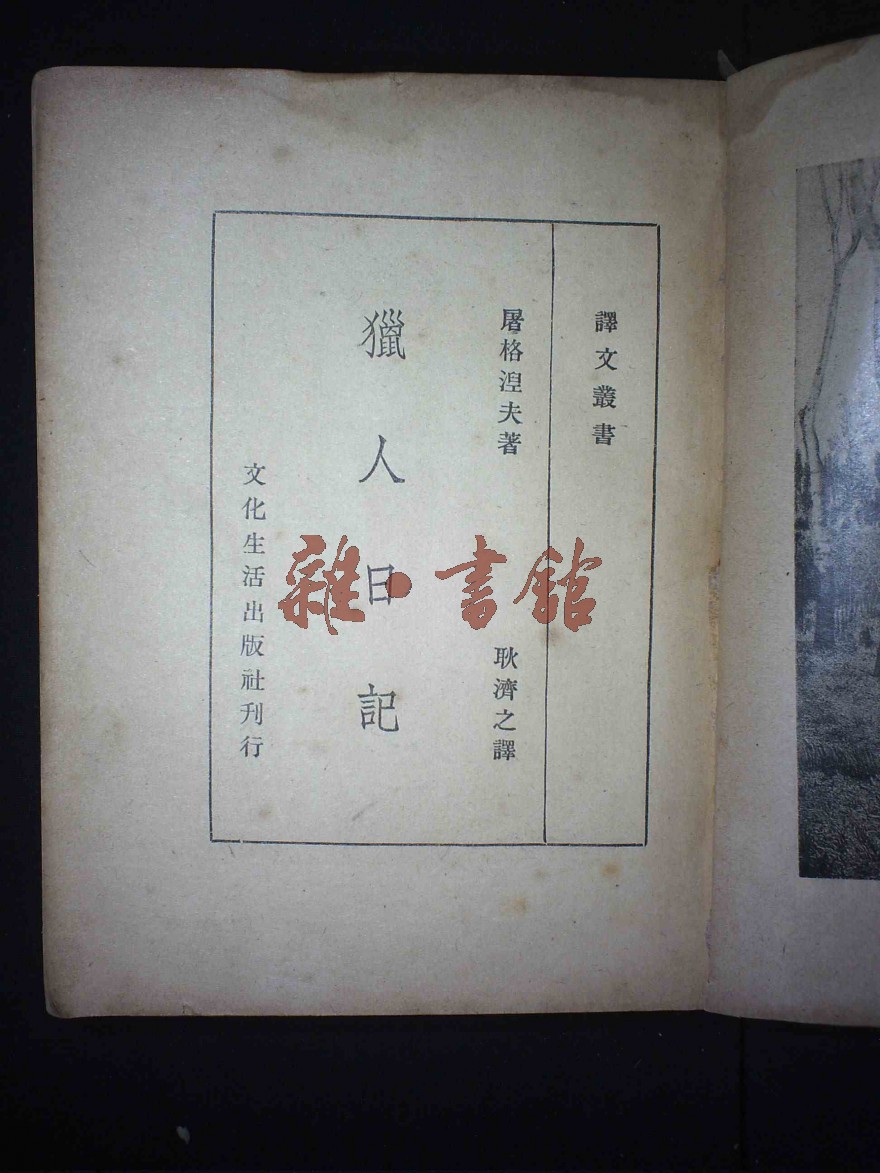 譯文叢書
屠格涅夫著 耿濟之譯
獵人日記
文化生活出版社刊行
雜·書館